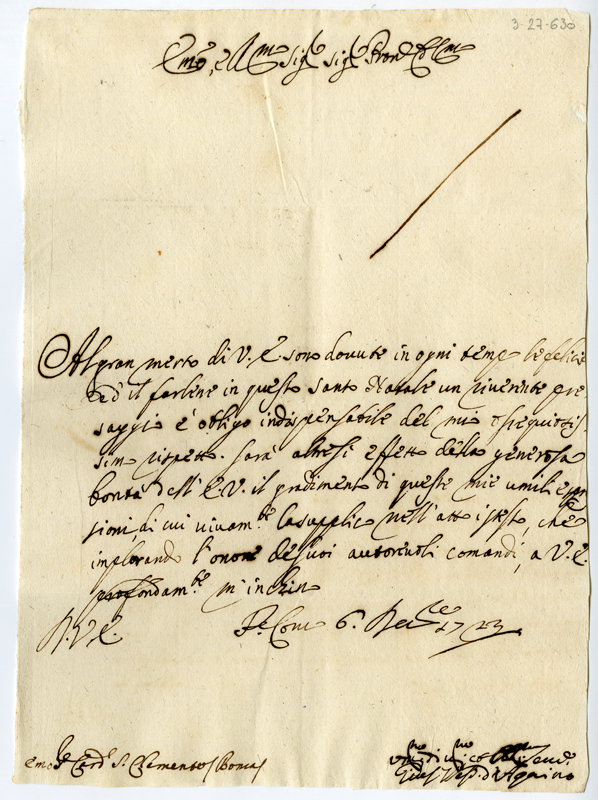 3-27-630
Emo, e Rmo Sigr Sigr Pron Colmo
Al gran merto di V. E. sono dovute in ogni temp le felicit
ed il farlene in questo santo Natale un riverente pre
saggio è obligo indispensabile del mio ossequiosis
simo rispetto. Sarà altresì effetto della generosa
bontà dell' E. V. il gradimento di queste mie umili espre
sioni, di cui vivam.te la supplico nell' atto istesso, che
implorando l'onore de suoi autorevoli comandi, a V. E.
profondam.te m' inchino
D. V. E.
6. Dec.re 1723
Emo Sr Card. S. Clemente Roma
d'Aquino